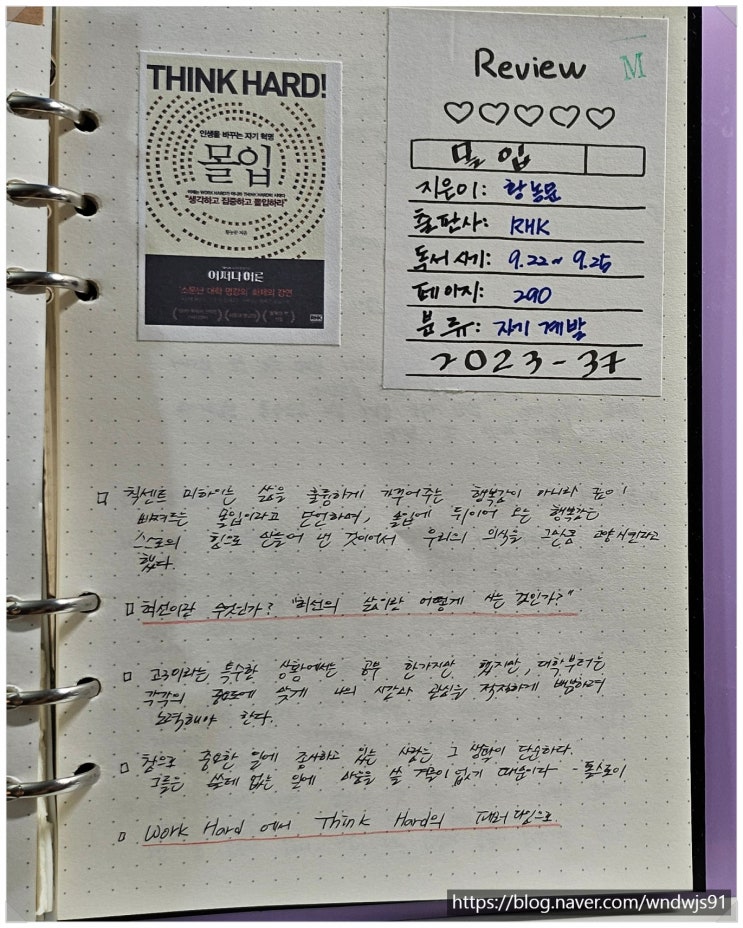 THINK HARD!
인생을 바꾸는 자기 혁명
몰입
이제는 WORK HARD가 아니라 THINK HARD의 시대다
"생각하고 집중하고 몰입하라"
황농문 지음
어쩌다 어른
RHK
Review
M
몰입
지은이: 황농문
출판사: RHK
독서 시기: 9.22~9.25
페이지: 290
분류: 자기계발
2023-37
칙센트 미하이는 삶을 훌륭하게 가꾸어주는 행복감이 아니라 깊이
빠져드는 몰입이라고 단언하며, 몰입에 뒤이어 오는 행복감은
스스로의 힘으로 만들어 낸 것이어서 우리의 의식을 그만큼 고양시킨다고
했다.
최선이란 무엇인가? "최선의 삶이란 어떻게 사는 것인가?"
고3이라는 특수한 상황에서는 공부 한가지만 했지만, 대학부터는
각각의 중요도에 맞게 나의 시간과 관심을 적절하게 배분하려
노력해야 한다.
참으로 중요한 일에 종사하고 있는 사람은 그 생활이 단순하다.
그들은 쓸데 없는 일에 마음을 쓸 겨를이 없기 때문이다 - 톨스토이
Work Hard 에서 Think Hard의 패러다임으로
https://blog.naver.com/wndwjs91